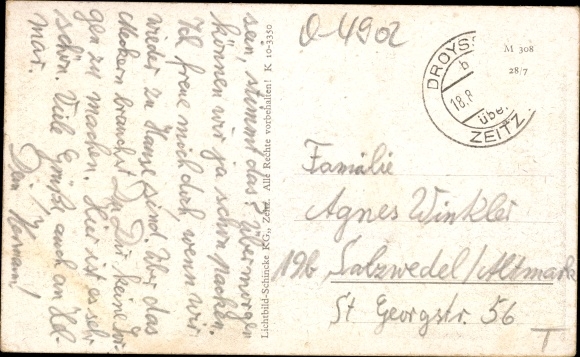 sein, stimmt das? Übermorgen
können wir ja schon packen.
Ich freue mich doch, wenn wir
wieder zu Hause sind. Über das
Meckern brauchst Du Dir keine Sor-
gen zu machen. Hier ist es sehr
schön. Viele Grüße auch an Hel-
mar.
Dein Hermann!
Lichtbild-Schincke KG., Zeitz. Alle Rechte vorbehalten! K 10-3350
O-4902
DROYSS
b
18.8
über
ZEITZ
M 308
28/7
Familie
Agnes Winkler
19b Salzwedel/Altmark
St Georgstr. 56
T